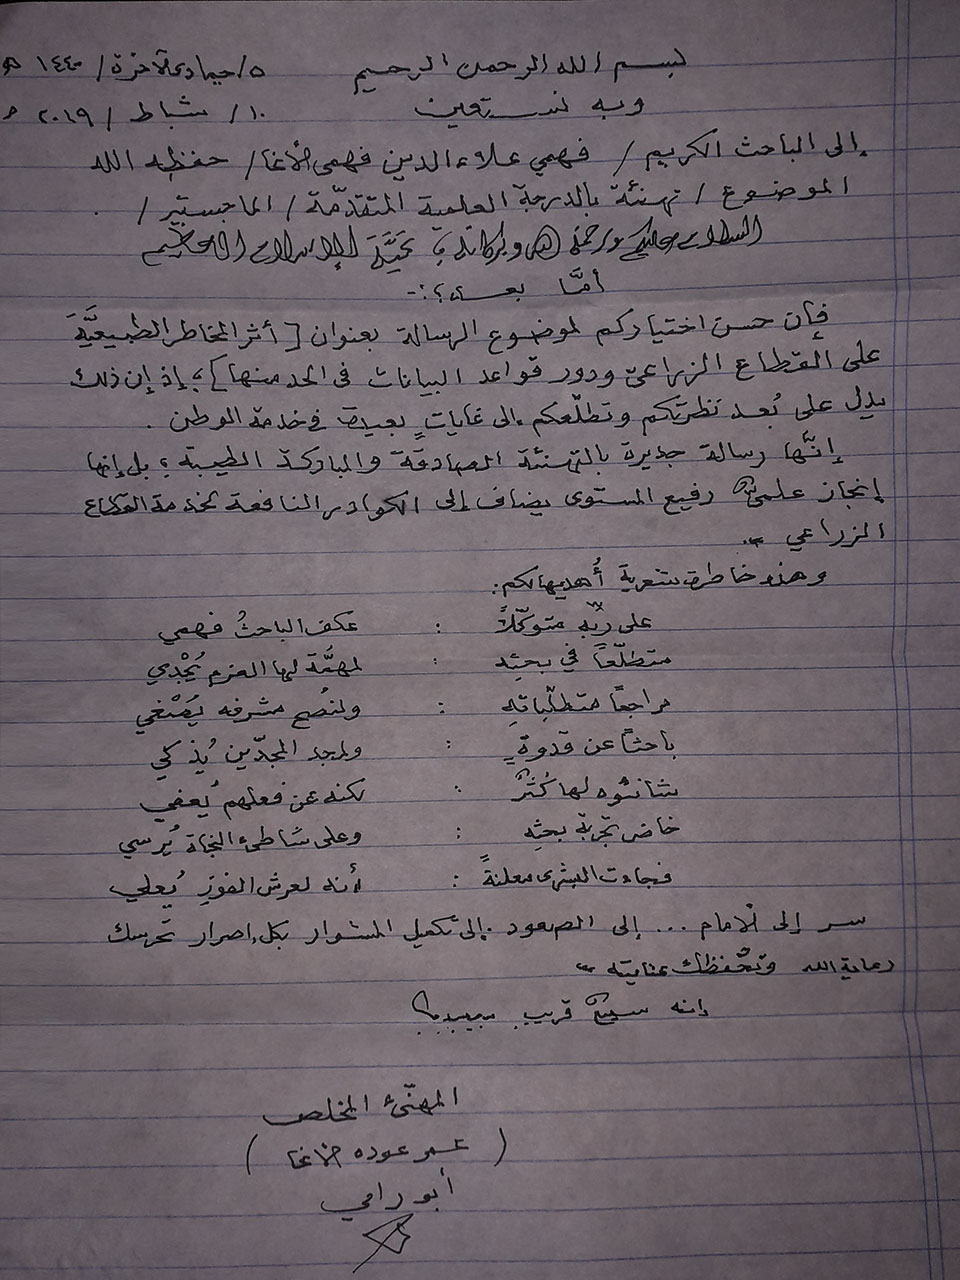 بسم الله الرحمن الرحيم
٥/جمادى الآخرة/ ١٤٤٠ هـ
وبه نستعين
١٠/ شباط / ٢٠١٩ م
إلى الباحث الكريم / فهمي علاء الدين فهمي الأغا / حفظه الله
الموضوع / تهنئة بالدرجة العلمية المتقدّمة / الماجستير / .
السلام عليكم ورحمة الله وبركاته، تحيَّة الإسلام العظيم
أمَّا بعد؟:-
فإن حسن اختياركم لموضوع الرسالة بعنوان [ أثر المخاطر الطبيعيَّة
على القطاع الزراعي ودور قواعد البيانات في الحد منها ]؛ إذ إن ذلك
يدل على بُعد نظرتكم وتطلّعكم إلى غاياتٍ بعيدة في خدمة الوطن .
إنَّها رسالة جديرة بالتهنئة الصادقة والمباركة الطيبة؛ بل إنها
إنجاز علميٌّ رفيع المستوى يضاف إلى الكوادر النافعة لخدمة القطاع
الزراعي ..
وهذه خاطرة شعرية أُهديها لكم:
على ربّه متوكّلاً : عكف الباحثُ فهمي
متطلّعاً في بحثِه : لمهمَّة لها العزم يُجْدي
مراجعًا متطلّباتِهِ : ولنُصح مشرفه يُصْغي
باحثاً عن قدوةٍ : ولمجد المجدّين يُذكي
شانئوه لها كُثرٌ : لكنه عن فعلهم يُعفي
خاض تجربة بحثِه : وعلى شاطئ النجاة يُرسي
فجاءت البشرى معلنةً : أنه لعرش الفوزِ يُعلي
سر إلى الأمام ... إلى الصعود . إلى تكميل المشوار بكل إصرار تحرسك
رعاية الله وتحفظك عنايته ..
إنه سميعٌ قريب مجيب؟
المهنّئ المخلص
( عمر عوده الأغا )
أبو رامي